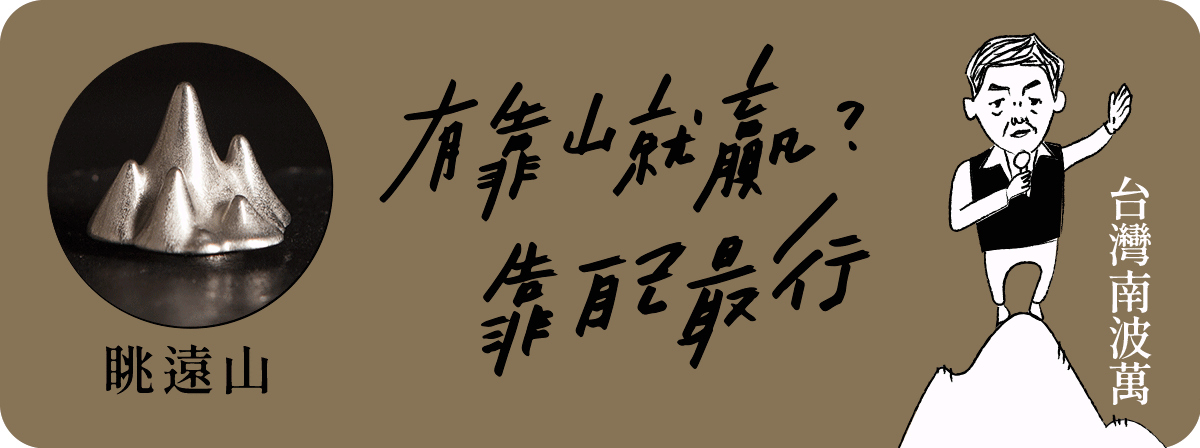 眺遠山
有靠山就贏?
靠自己最行
台灣南波萬